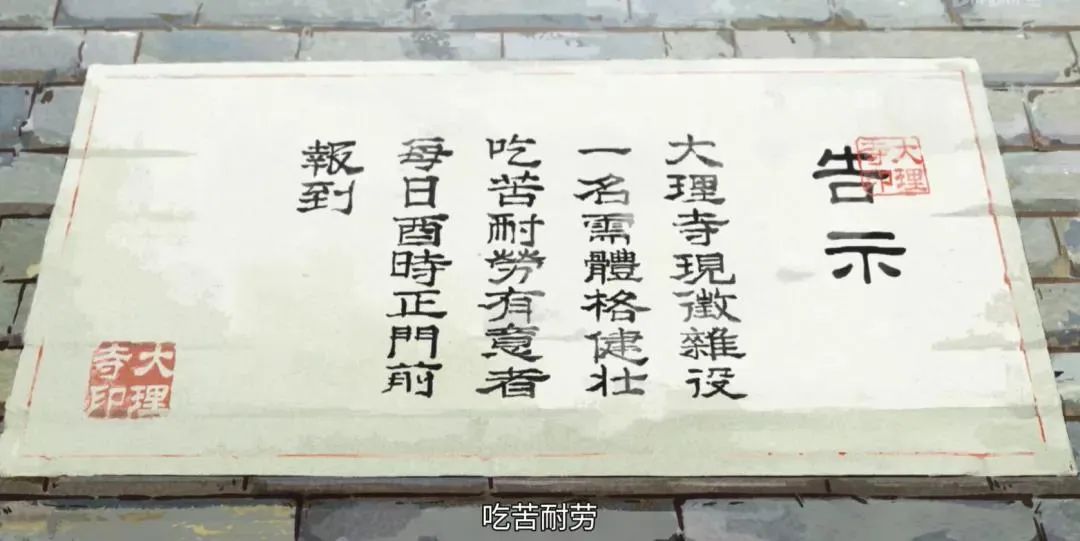 告示
大理寺印
大理寺現徵雜役
一名需體格健壮
吃苦耐勞有意者
每日酉時正門前
報到
大理寺印
吃苦耐劳